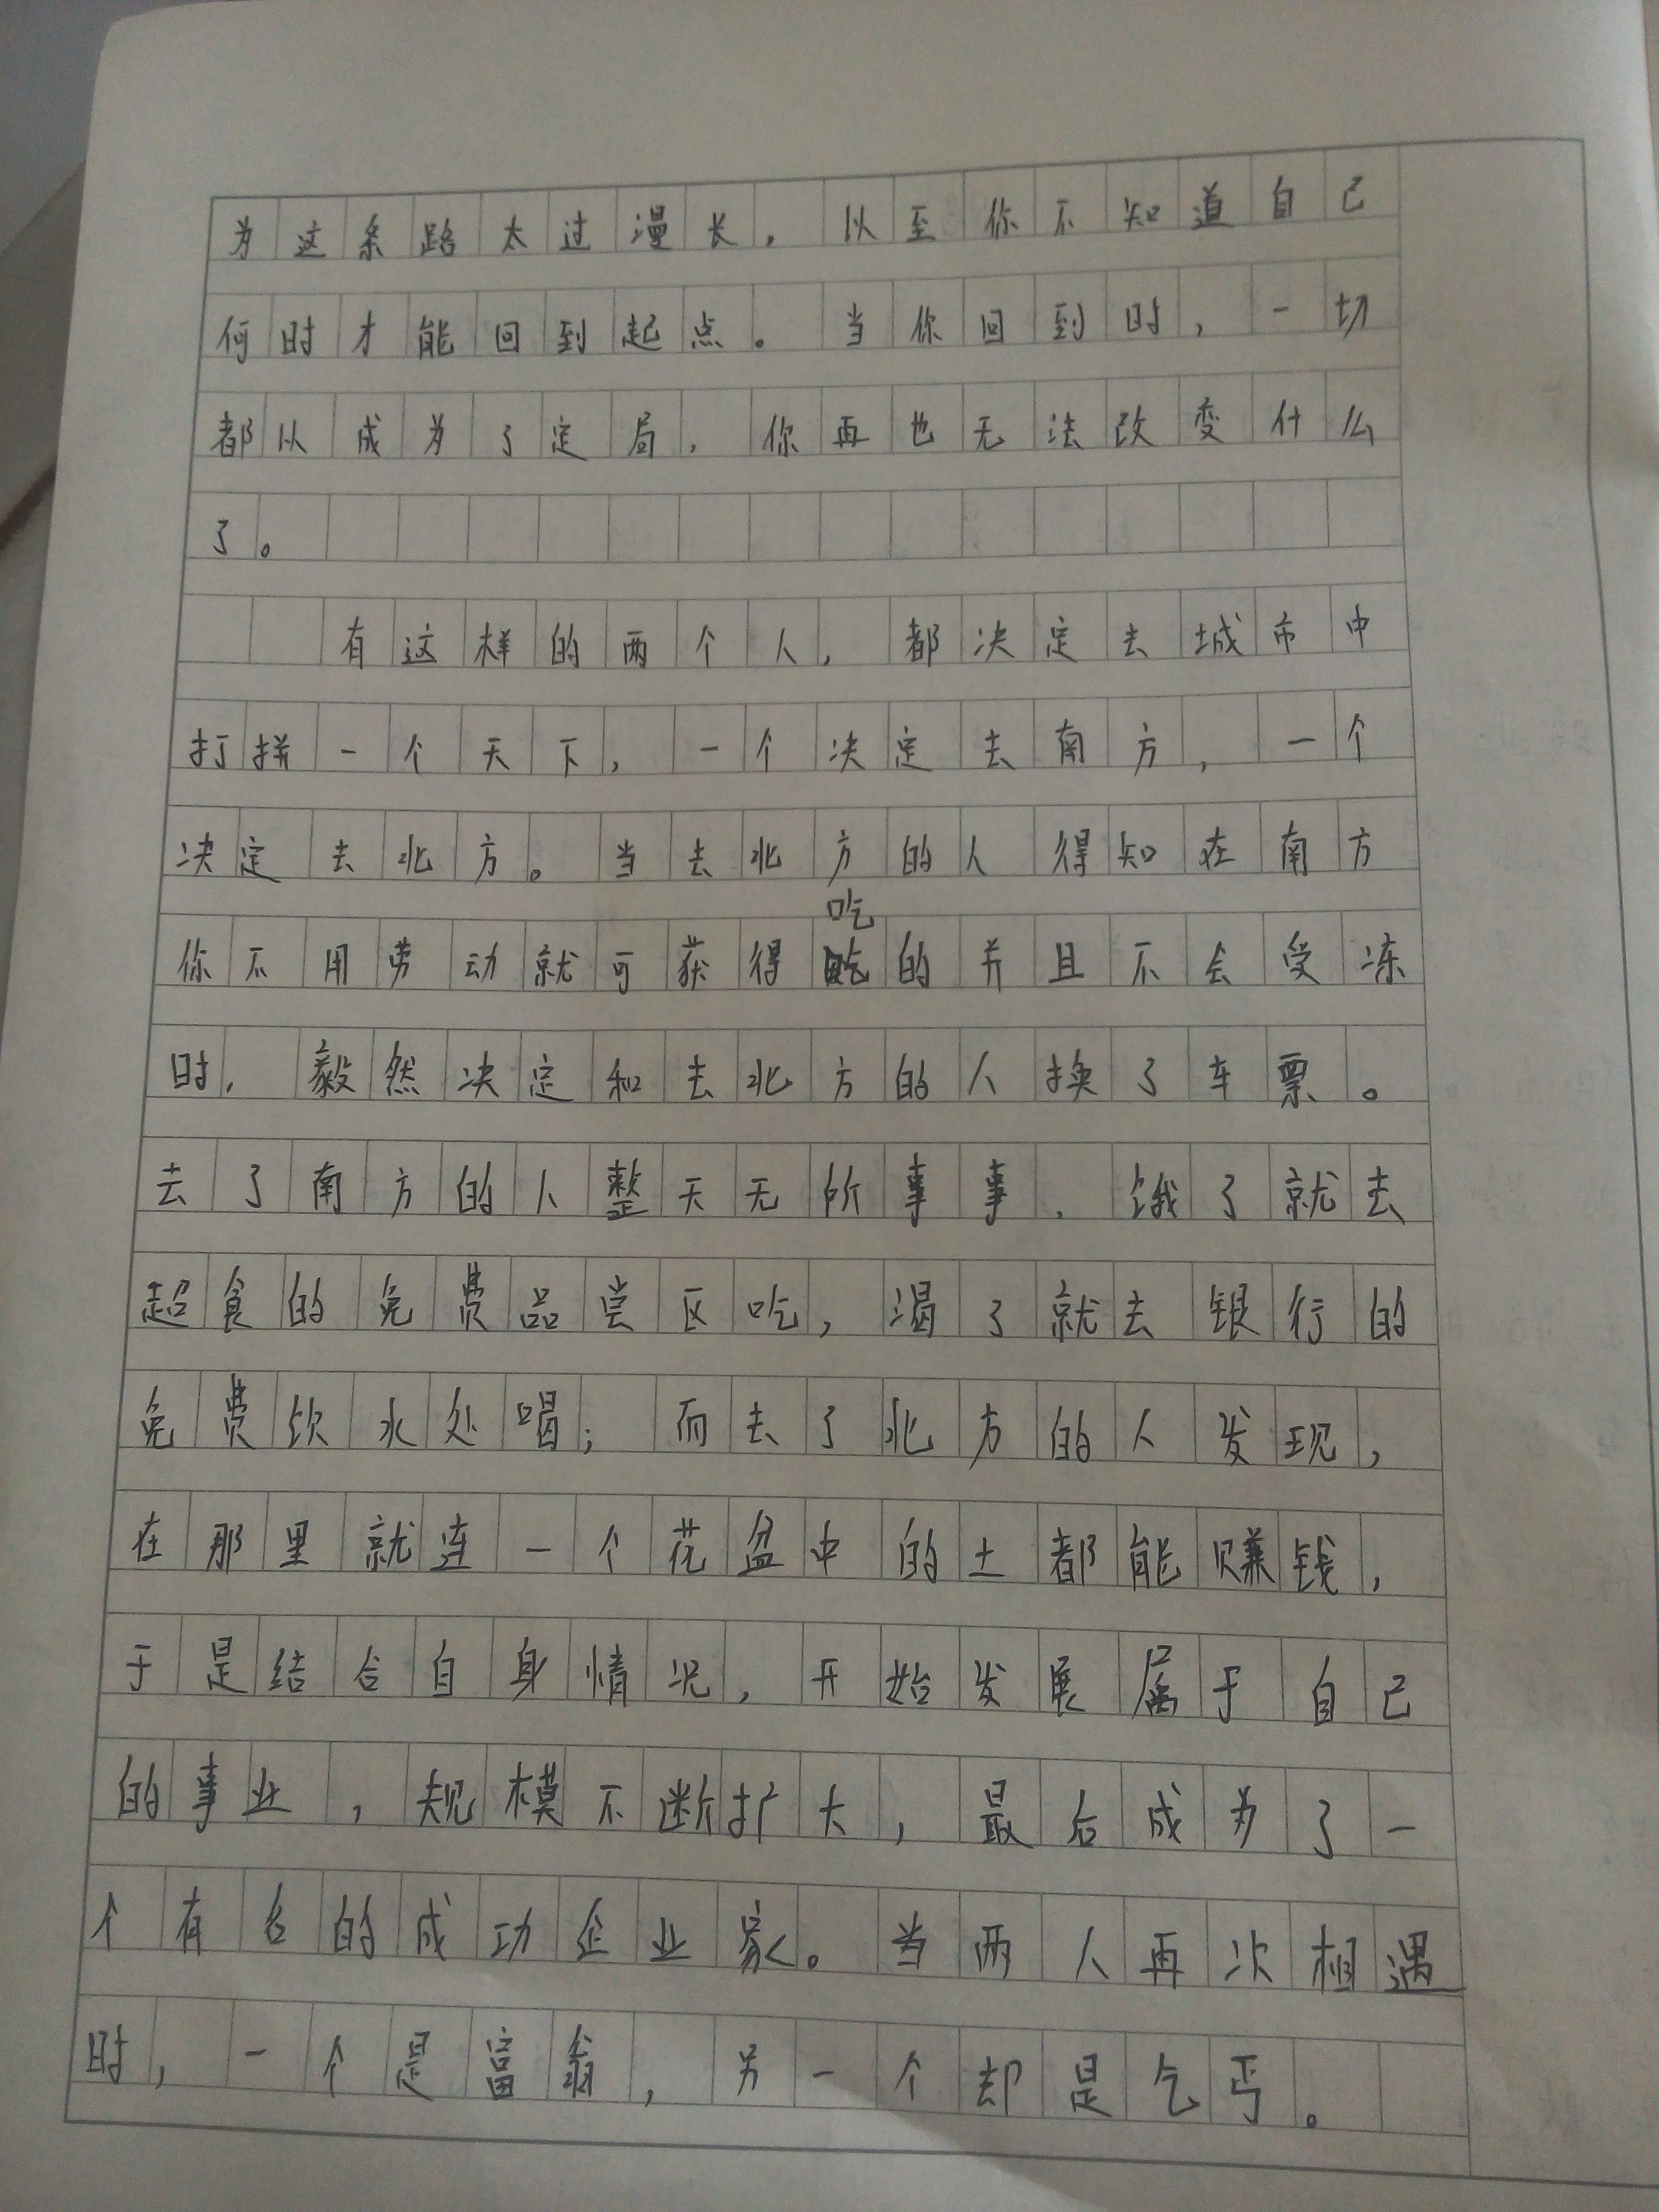 为这条路太过漫长，以至你不知道自己
何时才能回到起点。当你回到时，一切
都以成为了定局，你再也无法改变什么
了。
有这样的两个人，都决定去城市中
打拼一个天下，一个决定去南方，一个
决定去北方。当去北方的人得知在南方
你不用劳动就可获得吃的并且不会受冻
时，毅然决定和去北方的人换了车票。
去了南方的人整天无所事事，饿了就去
超食的免费品尝区吃，渴了就去银行的
免费饮水处喝；而去了北方的人发现，
在那里就连一个花盆中的土都能赚钱，
于是结合自身情况，开始发展属于自己
的事业，规模不断扩大，最后成为了一
个有名的成功企业家。当两人再次相遇
时，一个是富翁，另一个却是乞丐。